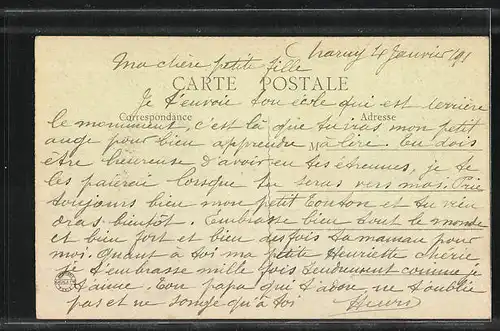 Charny 24 Janvier 191
Ma chère petite fille
CARTE POSTALE
Je t'envoie ton école qui est derrière
Correspondance
Adresse
le monument, c'est là que tu vias mon petit
ange pour bien apprendre à lire. Tu dois
M
etre heureuse d'avoir eu tes étrennes, je te
les paierai lorsque tu seras vers moi. Prie
toujours bien mon petit Tonton et tu vien
dras bientôt. Embrasse bien tout le monde
et bien fort et bien des fois ta maman pour
moi. Quant à toi ma petite Henriette cherie
je t'embrasse mille fois tendrement comme je
t'aime. Ton papa qui t'adore, ne t'oublie
pas et ne songe qu'à toi
Henri